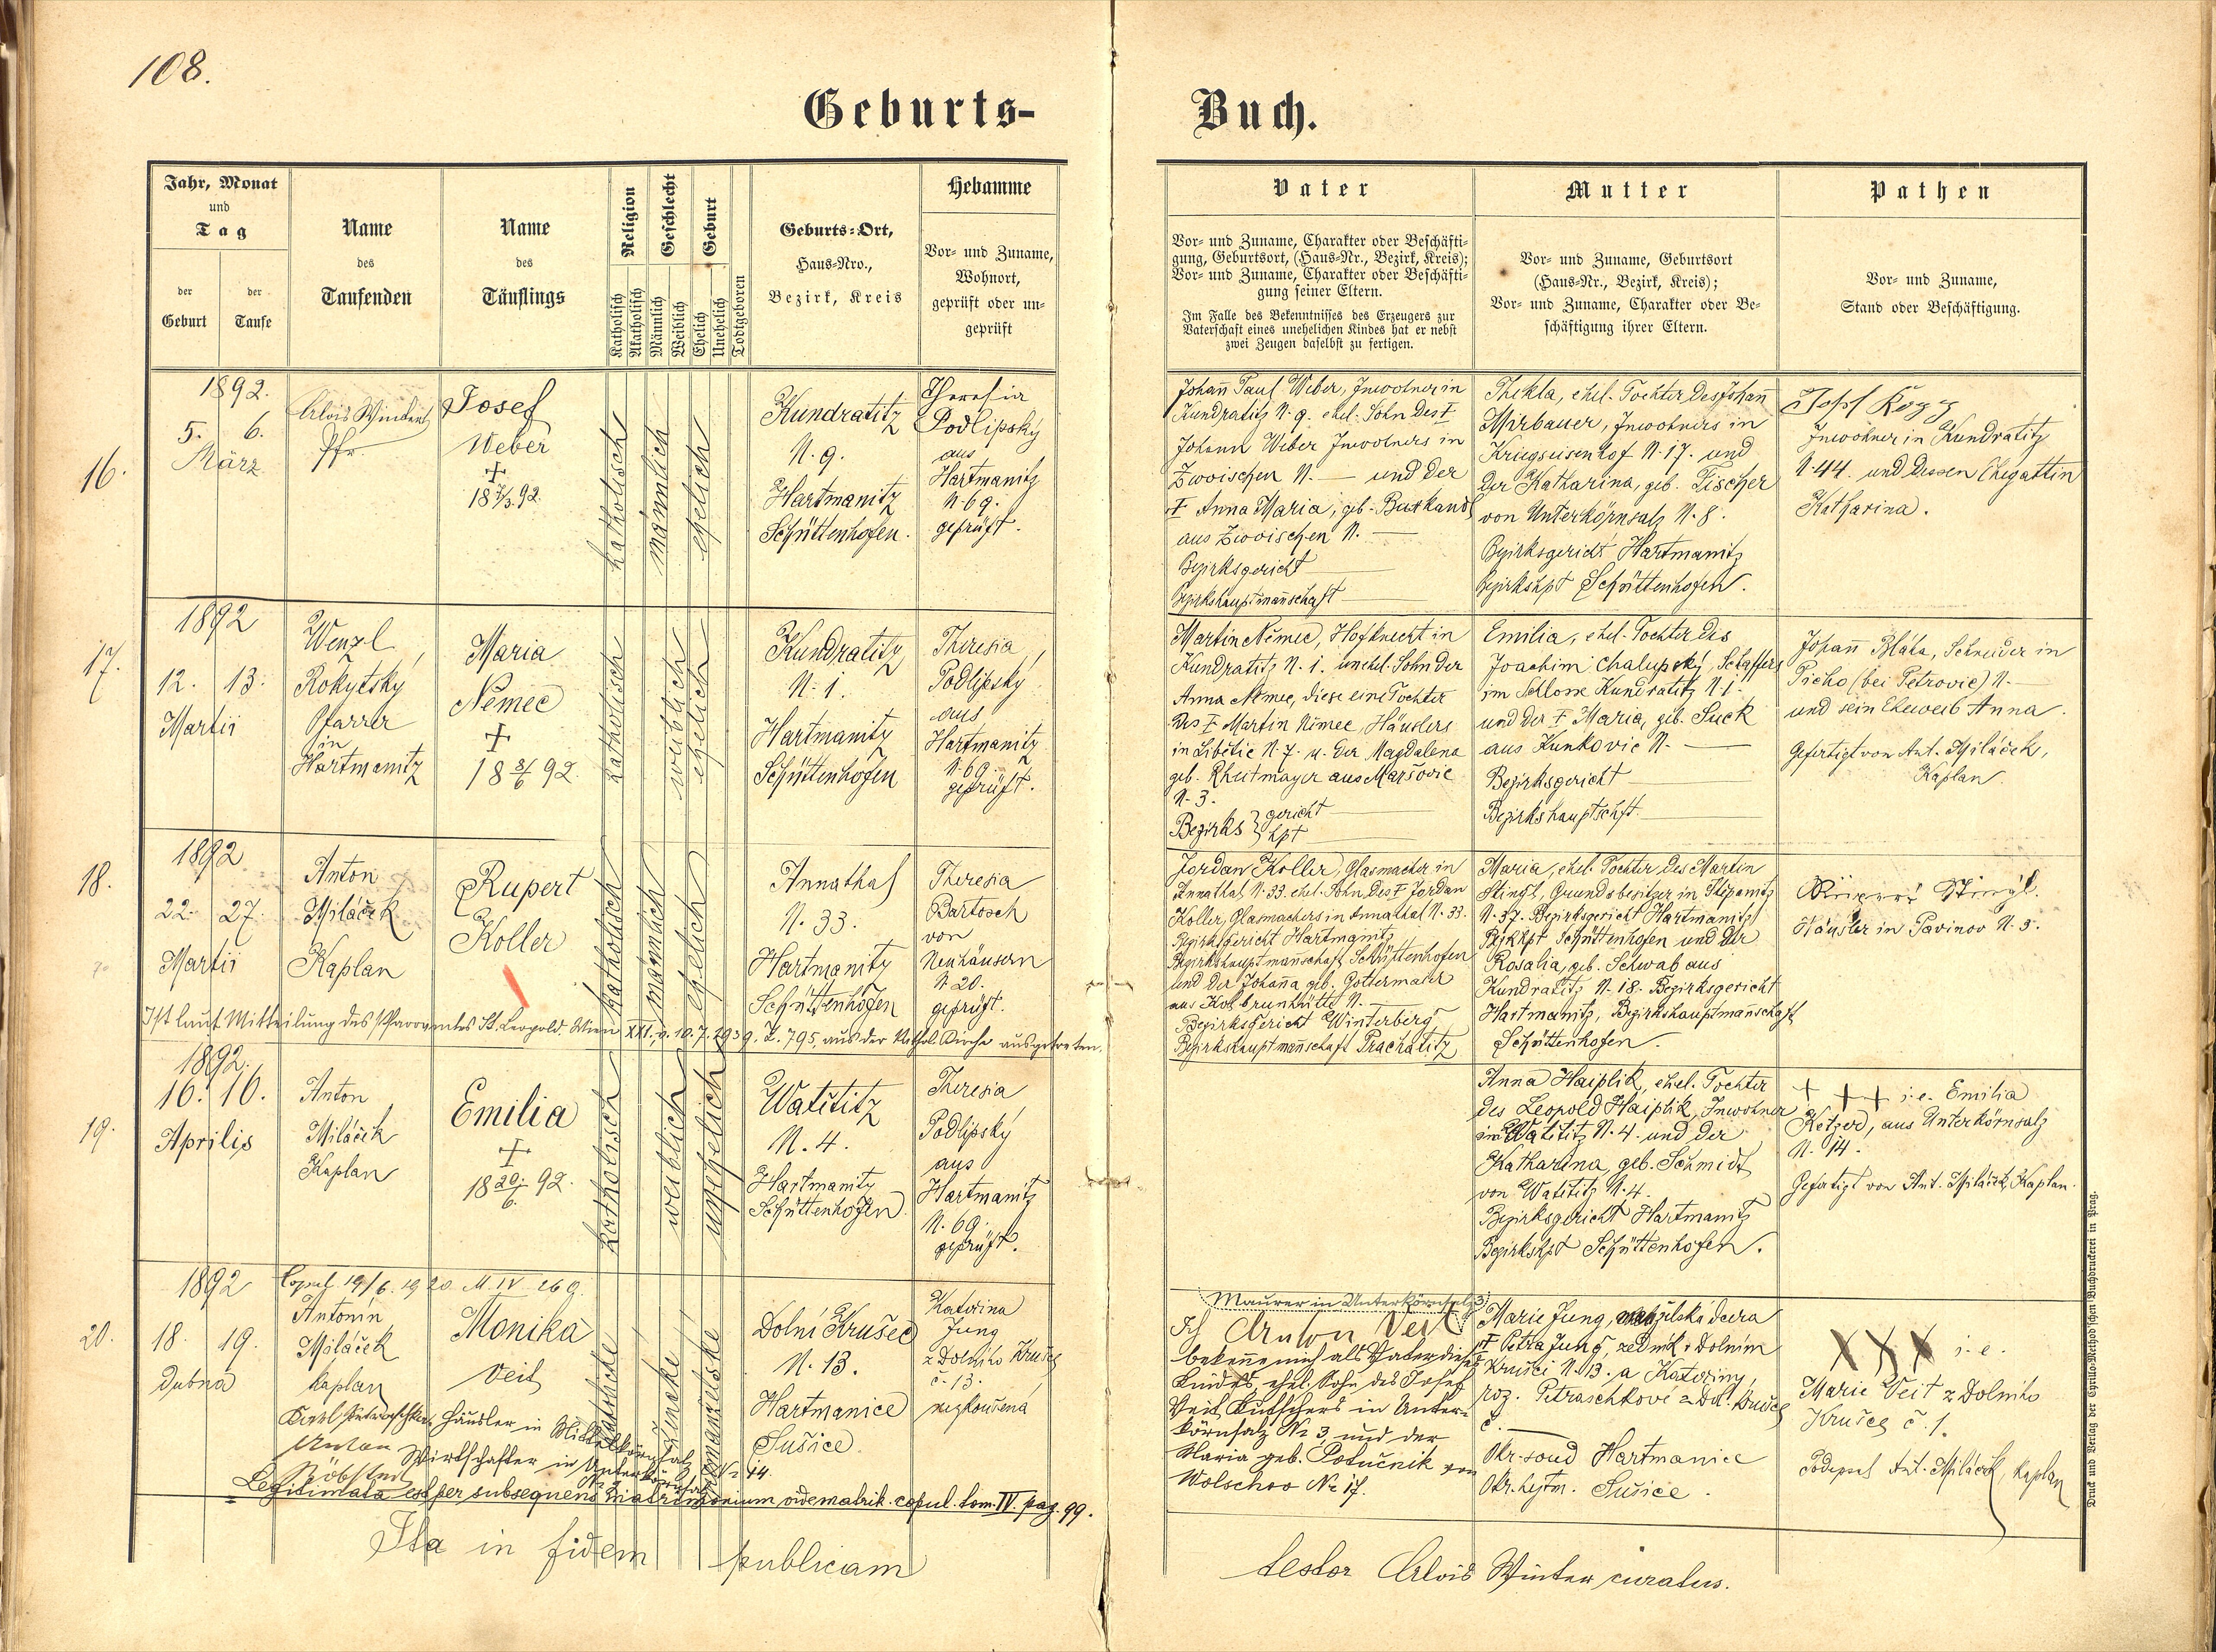 108.
Geburts-
Buch.
Jahr, Monat
und
Tag
der
Geburt
der
Taufe
Name
des
Taufenden
Name
des
Täuflings
Religion
Geschlecht
Geburt
Katholisch
Akatholisch
Männlich
Weiblich
Ehelich
Unehelich
Todtgeboren
Geburts-Ort,
Haus-Nro.,
Bezirk, Kreis
Hebamme
Vor- und Zuname,
Wohnort,
geprüft oder un-
geprüft
Vater
Vor- und Zuname, Charakter oder Beschäfti-
gung, Geburtsort, (Haus-Nr., Bezirk, Kreis);
Vor- und Zuname, Charakter oder Beschäfti-
gung seiner Eltern.
Im Falle des Bekenntnisses des Erzeugers zur
Vaterschaft eines unehelichen Kindes hat er nebst
zwei Zeugen daselbst zu fertigen.
Mutter
Vor- und Zuname, Geburtsort
(Haus-Nr., Bezirk, Kreis);
Vor- und Zuname, Charakter oder Be-
schäftigung ihrer Eltern.
Pathen
Vor- und Zuname,
Stand oder Beschäftigung.
16.
1892.
5. 6.
März
Alois Winter
Pfr.
Josef
Weber
+
18 7/3 92.
katholisch
männlich
ehelich
Kundratitz
N. 9.
Hartmanitz
Schüttenhofen.
Theresia
Podlipský
aus
Hartmanitz
N. 69.
geprüft.
Johann Paul Weber, Inwohner in
Kundratitz N. 9. ehel. Sohn des †
Johann Weber Inwohners in
Zwoischen N. — und der
† Anna Maria, geb.
aus Zwoischen N. —
Bezirksgericht —
Bezirkshauptmannschaft —
Thekla, ehel. Tochter des Johann
Mirbauer, Inwohners in
Kriegseisenhof N. 17. und
der Katharina, geb. Fischer
von Unterkörnsalz N. 8.
Bezirksgericht Hartmanitz
Bezirkshpt Schüttenhofen.
Inwohner in Kundratitz
N. 44. und dessen Ehegattin
Katharina.
17.
1892
12. 13.
Martii
Wenzl
Rokytský
Pfarrer
in
Hartmanitz
Maria
Němec
+
18 8/6 92.
katholisch
weiblich
ehelich
Kundratitz
N. 1.
Hartmanitz
Schüttenhofen
Theresia
Podlipský
aus
Hartmanitz
N. 69.
geprüft.
Martin Němec, Hofknecht in
Kundratitz N. 1. unehel. Sohn der
Anna Němec, diese eine Tochter
des † Martin Němec, Häuslers
in Libětic N. 7. u. der Magdalena
geb. Rheitmayer aus Maršovic
N. 3.
Bezirks } gericht —
hpt —
Emilia, ehel. Tochter des
Joachim Chalupský, Schaffers
im Schlosse Kundratitz N. 1.
und der † Maria, geb. Suck
aus Kunkovic N. —
Bezirksgericht —
Bezirkshauptschft. —
Johann Bláha, Schneider in
Picho (bei Petrovic) N. —
und sein Eheweib Anna.
Gefertigt von Ant. Miláček,
Kaplan.
18.
1892
22. 27.
Martii
Anton
Miláček
Kaplan
Rupert
Koller
katholisch
männlich
ehelich
Annathal
N. 33.
Hartmanitz
Schüttenhofen
Theresia
Bartosch
von
Neuhäusern
N. 20.
geprüft.
Jordan Koller, Glasmacher in
Annathal N. 33. ehel. Sohn des † Jordan
Koller, Glasmachers in Annathal N. 33.
Bezirksgericht Hartmanitz
Bezirkshauptmannschaft Schüttenhofen
und der Johanna geb. Gottermaier
aus Kolbrunhütte N. —
Bezirksgericht Winterberg
Bezirkshauptmannschaft Prachatitz
Maria, ehel. Tochter des Martin
Stingl, Grundsbesitzer in Stepanitz
N. 37. Bezirksgericht Hartmanitz
Schüttenhofen und der
Rosalia, geb. Schwab aus
Kundratitz N. 18. Bezirksgericht
Hartmanitz, Bezirkshauptmannschaft
Schüttenhofen.
Stingl.
Häusler in Pavinov N. 3.
Ist laut Mitteilung des Pfarramtes St. Leopold. Wien XXI. v. 10. 7. 1939. Z. 795. aus der Kathol. Kirche ausgetreten.
19.
1892.
16. 16.
Aprilis
Anton
Miláček
Kaplan
Emilia
+
18 20/6. 92.
katholisch
weiblich
unehelich
Watětitz
N. 4.
Hartmanitz
Schüttenhofen
Theresia
Podlipský
aus
Hartmanitz
N. 69.
geprüft.
Anna Haiplik, ehel. Tochter
des Leopold Haiplik, Inwohner
in Watětitz N. 4. und der
Katharina, geb. Schmidt
von Watětitz N. 4.
Bezirksgericht Hartmanitz
Bezirkshpt Schüttenhofen.
+ ++ i. e. Emilia
aus Unterkörnsalz
N. 14.
Gefertigt von Ant. Miláček, Kaplan.
20.
1892
Copul. 19/6. 1920 M IV 269.
18. 19.
dubna
Antonín
Miláček
kaplan
Monika
Veit
katolické
ženské
nemanželské
Dolní Krušec
N. 13.
Hartmanice
Sušice.
Kateřina
Jung
z Dolního Krušce
č. 13.
nezkoušená
Häusler in Mittelkörnsalz
Anton Wirtschafter in Unterkörnsalz
Legitimata est per subsequens matrimonium vide matrik. copul. tom. IV. pag. 99.
Maurer in Unterkörnsalz 3
Ich Anton Veit
bekenne mich als Vater dieses
Kindes, ehel. Sohn des Josef
Veit Kutschers in Unter-
körnsalz Nr 3, und der
Maria geb. Potučnik von
Wolschoo Nr 17.
Marie Jung, manželská dcera
† Petra Jung, zedník v Dolním
Krušci N. 13. a Kateřiny,
roz. Petraschkové z Dol. Krušce
č. —
Okr. soud Hartmanice
Okr. hejtm. Sušice.
X X X i. e.
Marie Veit z Dolního
Krušce č. 1.
Podepsal Ant. Miláček, kaplan
Ita in fidem publicam
testor Alois Winter curatus.
Druck und Verlag der Cyrillo-Method'schen Buchdruckerei in Prag.